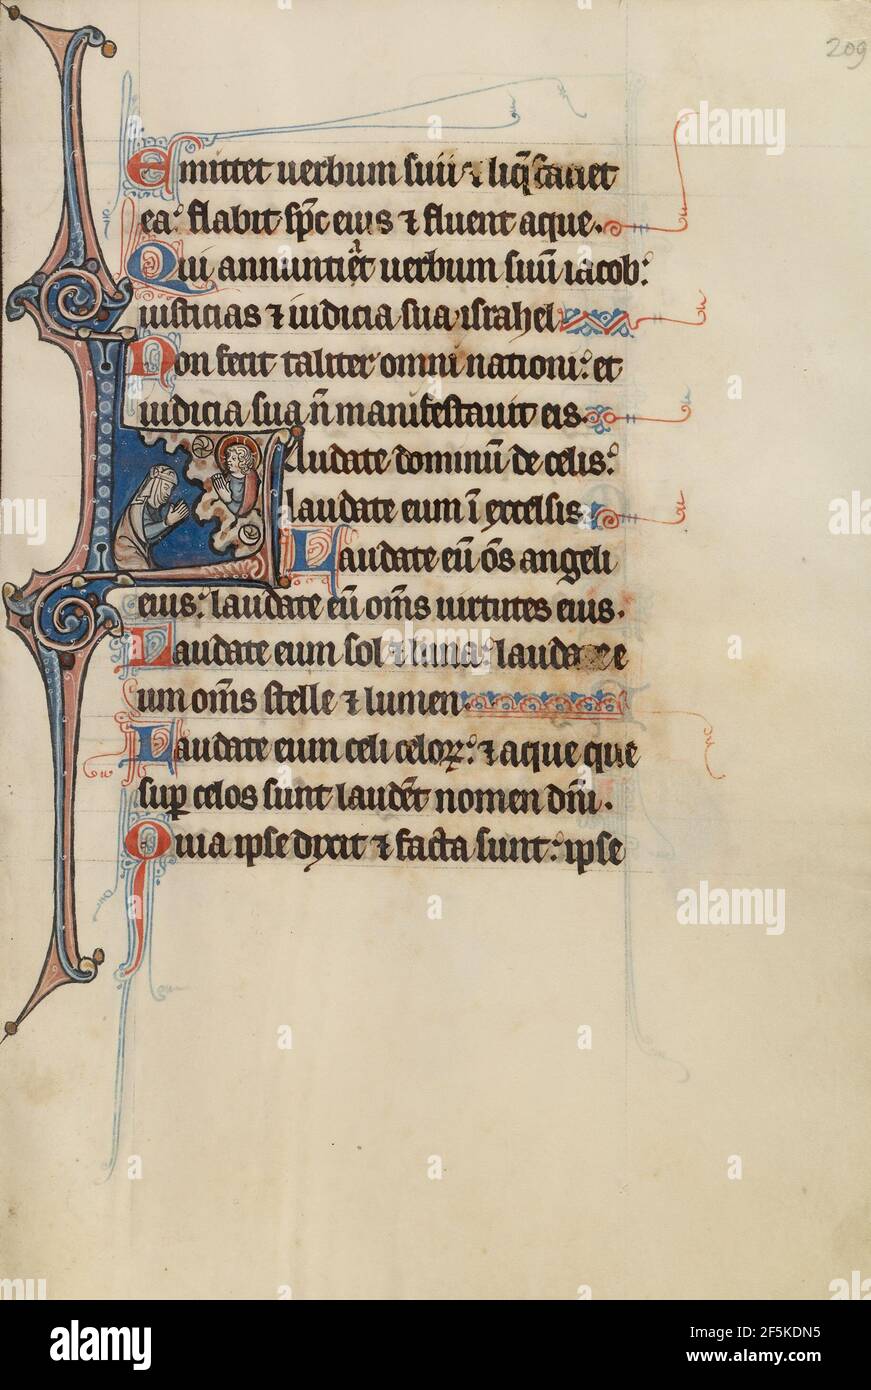 209
Emittet uerbum suū ⁊ liq̄faciet
ea: flabit sp̄c eius ⁊ fluent aque.
Qui annuntiat uerbum suū iacob:
iusticias ⁊ iudicia sua israhel
Non fecit taliter omni nationi: et
iudicia sua n̄ manifestauit eis.
Laudate dominū de celis:
laudate eum ī excelsis.
Laudate eū om̄s angeli
eius: laudate eū om̄s uirtutes eius.
Laudate eum sol ⁊ luna: laudate e
um om̄s stelle ⁊ lumen.
Laudate eum celi celoꝝ: ⁊ aque que
sup̄ celos sunt laudēt nomen dn̄i.
Quia ipse dixit ⁊ facta sunt: ipse
alamy
Image ID: 2F5KDN5
www.alamy.com